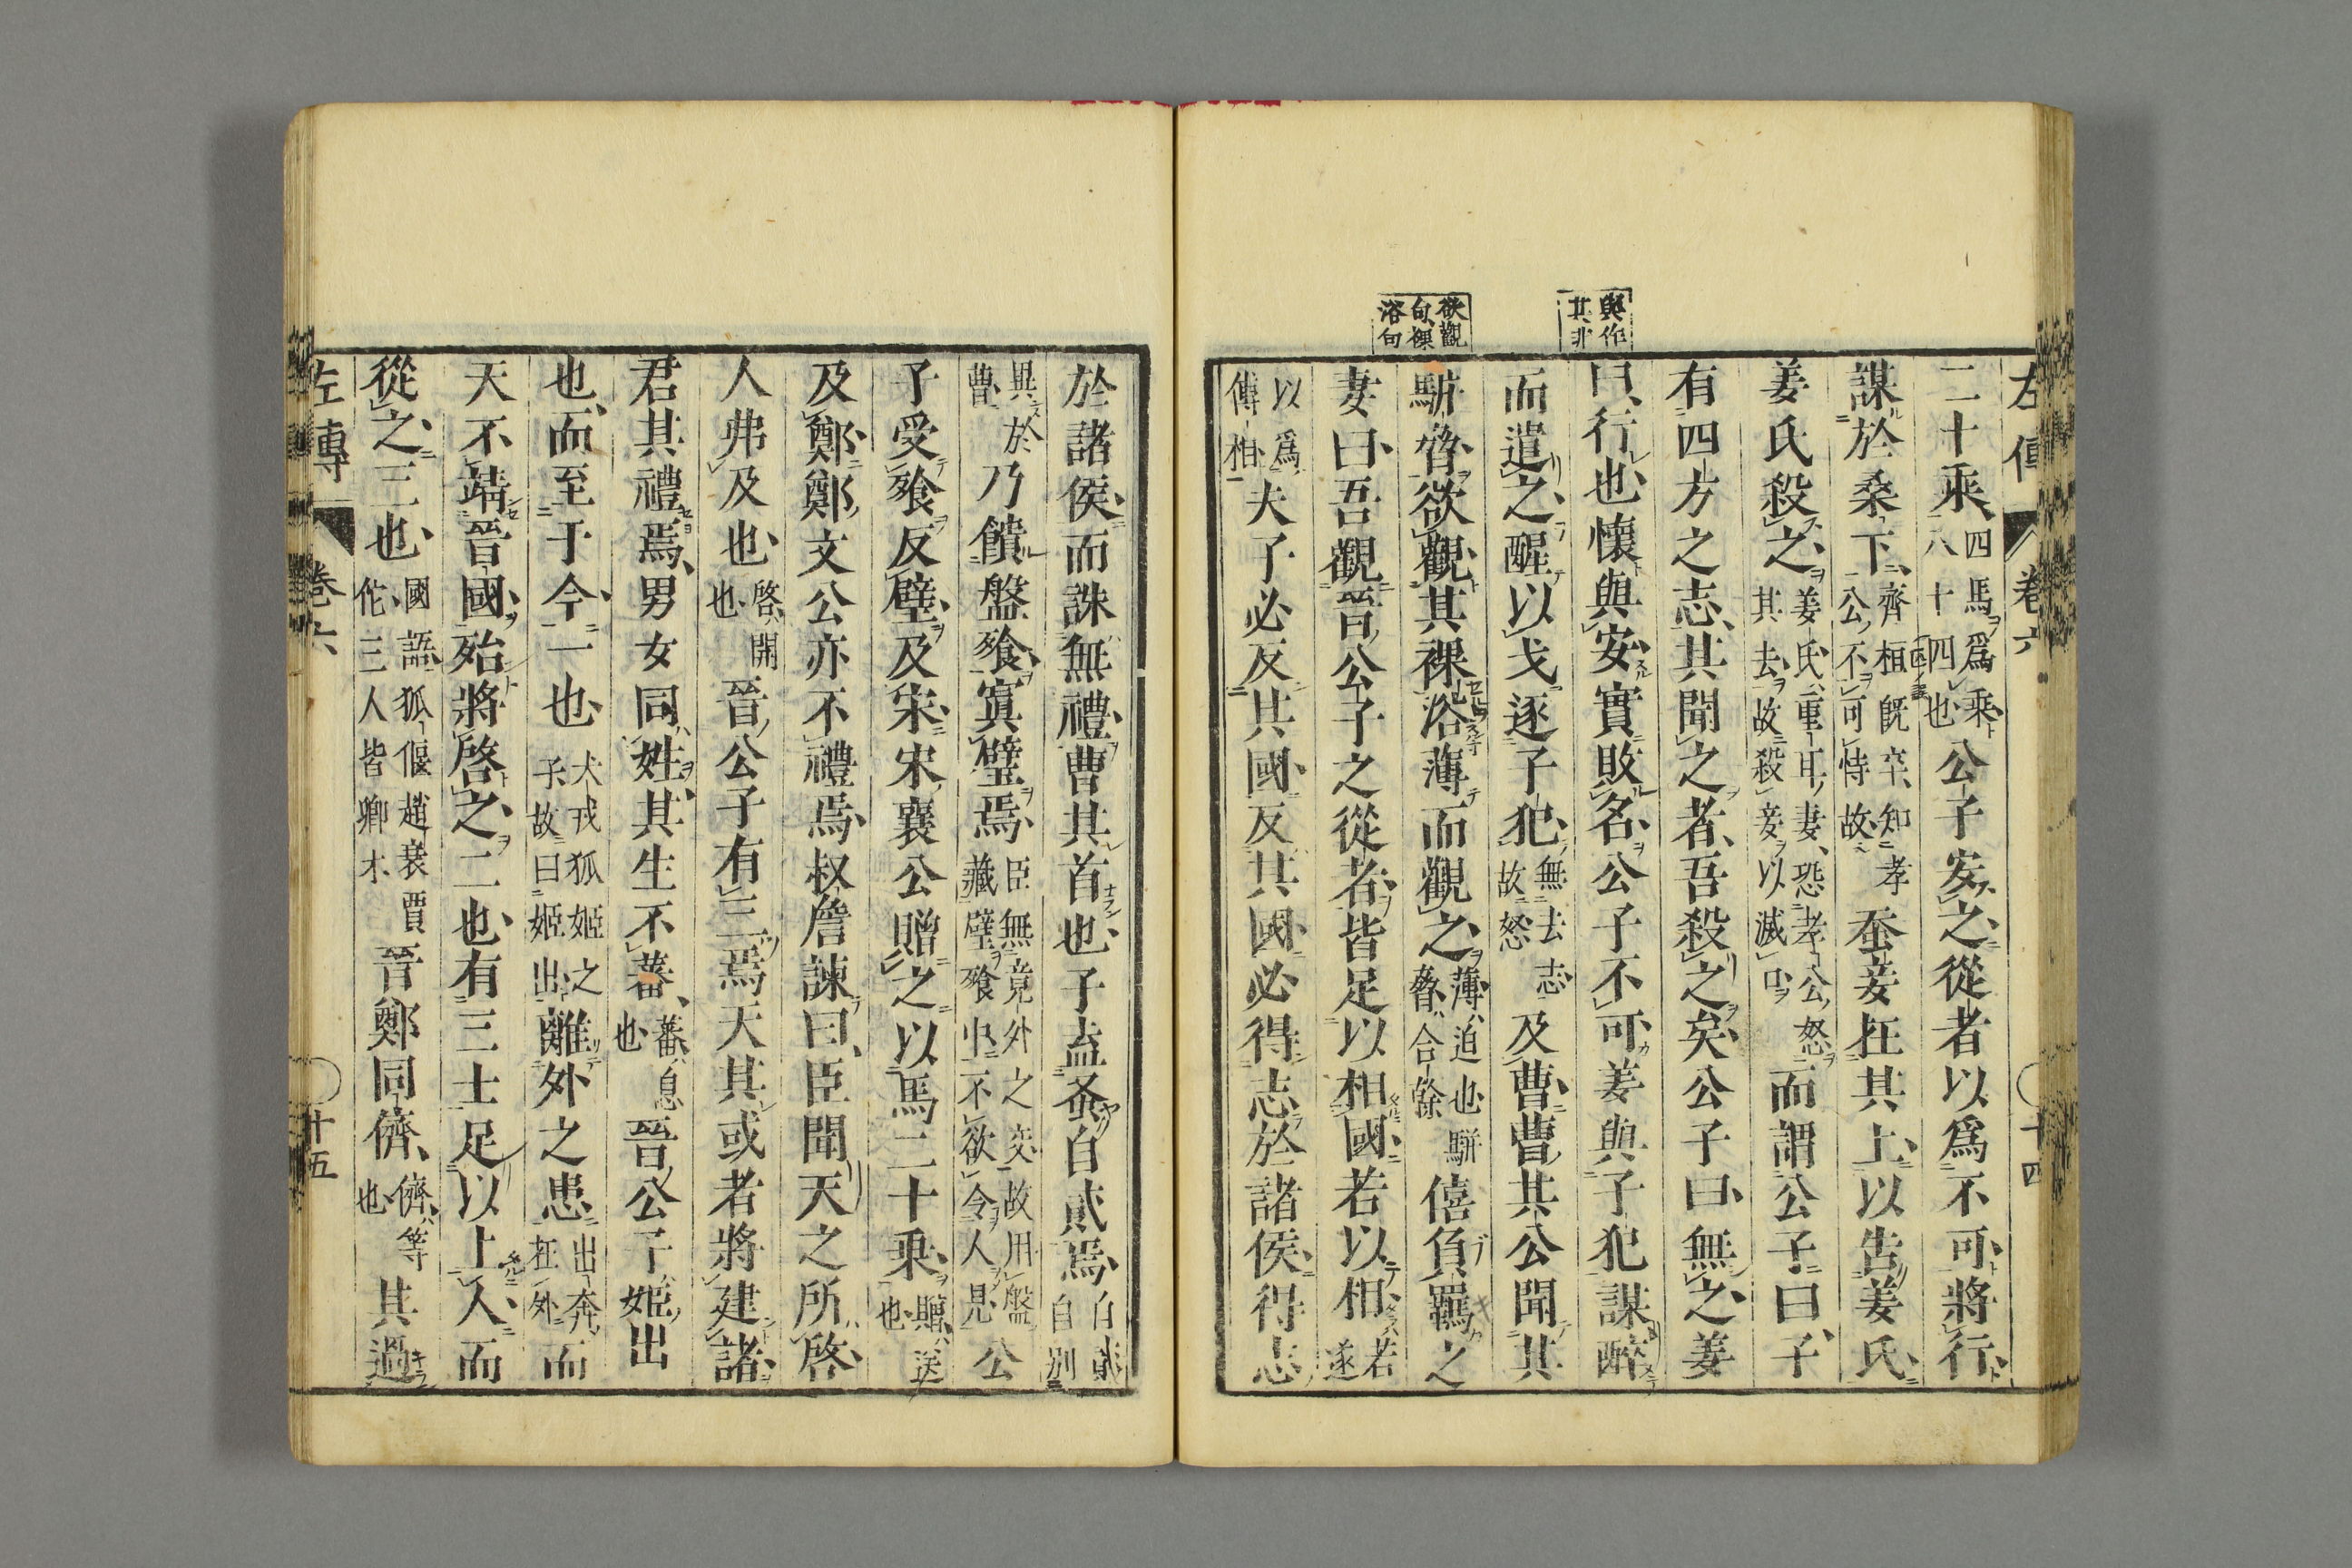 左傳 卷六 十四
二十乘四馬爲乘八十四也公子安之從者以爲不可將行
謀於桑下齊桓既卒知孝公不可恃故蚕妾在其上以告姜氏
姜氏殺之姜氏重耳妻恐孝公怒其去故殺妾以滅口而謂公子曰子
有四方之志其聞之者吾殺之矣公子曰無之姜
曰行也懷與安實敗名公子不可姜與子犯謀醉
而遣之醒以戈逐子犯無去志故怒及曹曹共公聞其
駢脅欲觀其裸浴薄而觀之薄迫也駢脅合餘僖負羈之
妻曰吾觀晉公子之從者皆足以相國若以相若遂
以爲傅相夫子必反其國反其國必得志於諸侯得志
與作共非
欲觀句裸浴句
於諸侯而誅無禮曹其首也子盍蚤自貳焉自貳自別
異於曹乃饋盤飱寘璧焉臣無竟外之交故用盤藏璧飱中不欲令人見公
子受飱反璧及宋宋襄公贈之以馬二十乘贈送也
及鄭鄭文公亦不禮焉叔詹諫曰臣聞天之所啓
人弗及也啓開也晉公子有三焉天其或者將建諸
君其禮焉男女同姓其生不蕃蕃息也晉公子姬出
也而至于今一也犬戎狐姬之子故曰姬出離外之患出奔在外而
天不靖晉國殆將啓之二也有三士足以上人而
從之三也國語狐偃趙衰賈佗三人皆卿木晉鄭同儕儕等也其過
左傳 卷六 十五